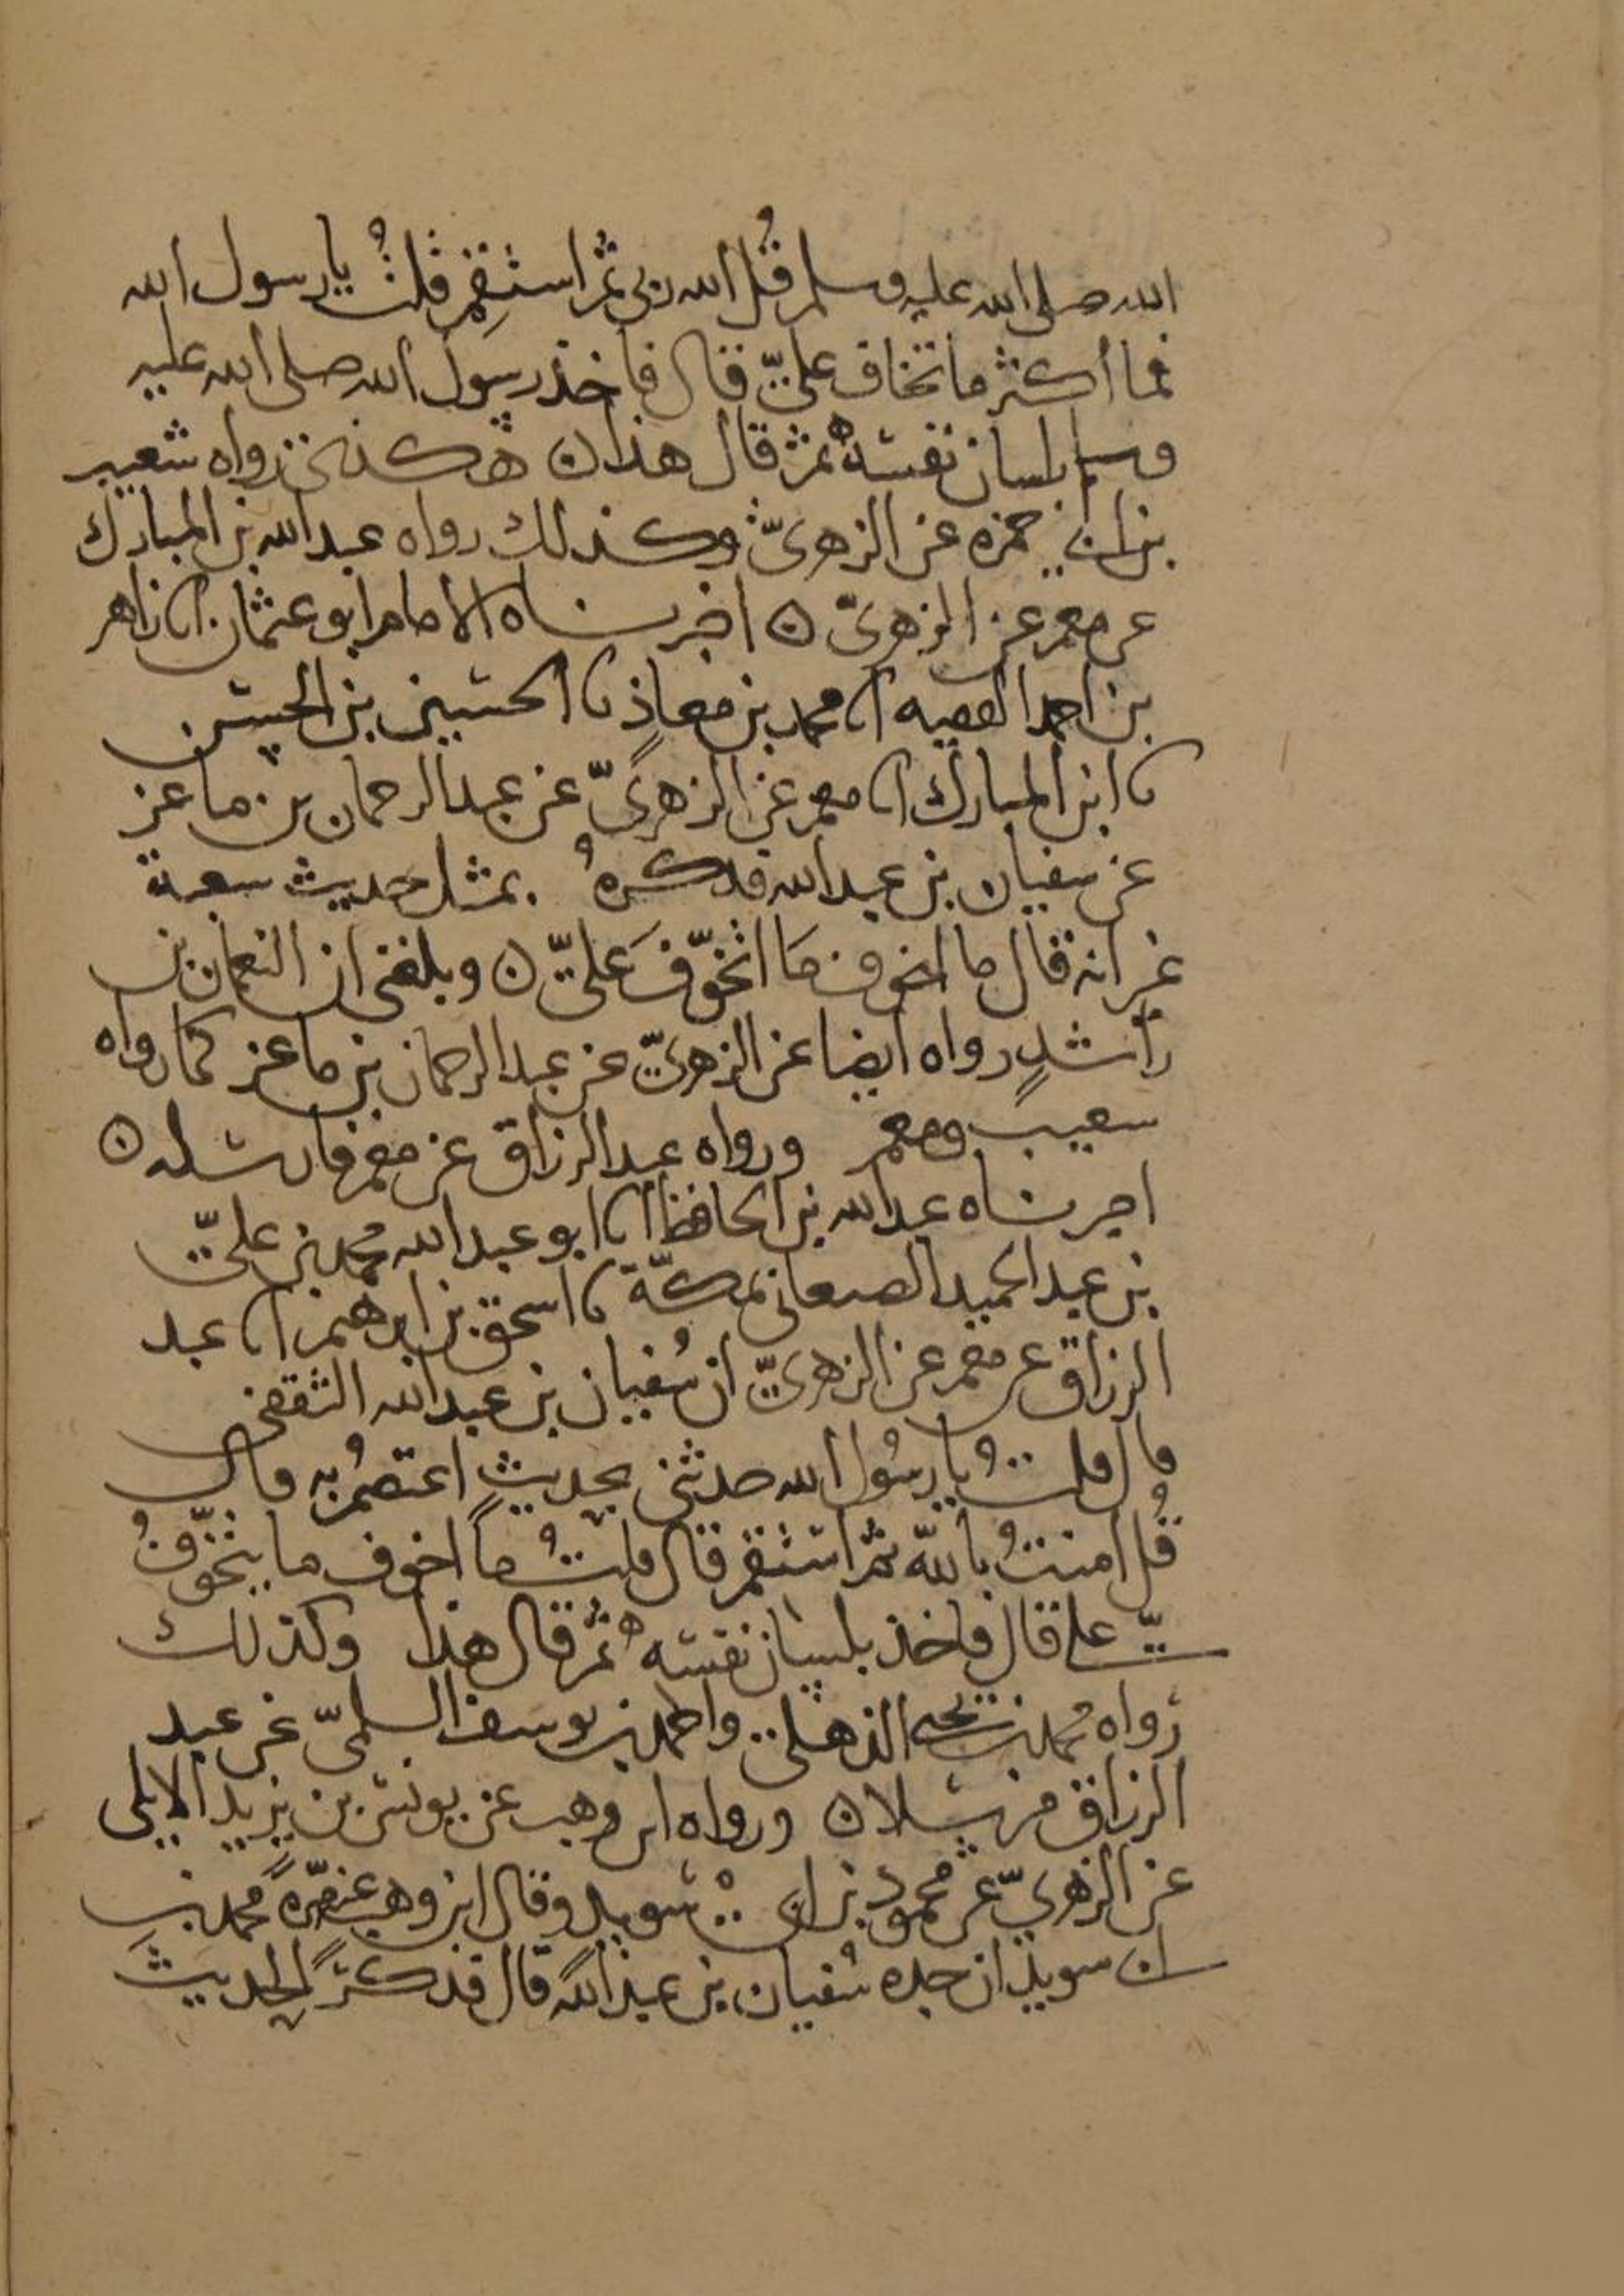 الله صلى الله عليه وسلم قُل الله ربي ثُمّ استقِم قلتُ يا رسول الله
فما أكثر ما تخاف عليّ قال فاخذ رسول الله صلى الله عليه
وسلم بلسان نفسه ثم قال هذا ه هكذى رواه شعيب
بن ابي حمزه عن الزهريّ وكذلك رواه عبد الله بن المبارك
عن معمر عن الزهريّ ه اخبرناه الامام ابو عثمان انا زاهر
بن احمد الفقيه انا محمد بن معاذٍ نا الحسين بن الحسن
نا ابن المبارك انا معمر عن الزهريّ عن عبد الرحمان بن ماعز
عن سفيان بن عبد الله فذكرهُ بمثل حديث شعبة
غير انه قال ما اخوف مَا اتخوّفَ عَليّ ه وبلغني ان النعمان بن
راشدٍ رواه ايضا عن الزهريّ عن عبد الرحمان بن ماعز كما رواه
شعيب ومعمر ورواه عبد الرزاق عن معمر فارسله ه
اخبرناه عبد الله بن الحافظ انا ابو عبد الله محمد بن عليّ
بن عبد الحميد الصنعاني بمكّة نا اسحق بن ابرهيم انا عبد
الرزاق عن معمر عن الزهريّ ان سُفيان بن عبد الله الثقفي
قال قلتُ يا رسُول الله حدثني بحديثٍ اعتصمُ به قال
قُل امنتُ بالله ثُم استقم قال قلتُ ما اخوف ما يتخوّفُ
عليّ قال فاخذ بلسان نفسه ثُم قال هذا وكذلك
رواه محمد بن يحيى الذهلي واحمد بن يوسف السلميّ عن عبد
الرزاق مرسلا ه ورواه ابن وهب عن يونس بن يزيد الايلي
عن الزهريّ عن محمود بن ابي سويد وقال ابن وهب مرّةً محمد بن
ابي سويد ان جده سُفيان بن عبد الله قال فذكر الحديث